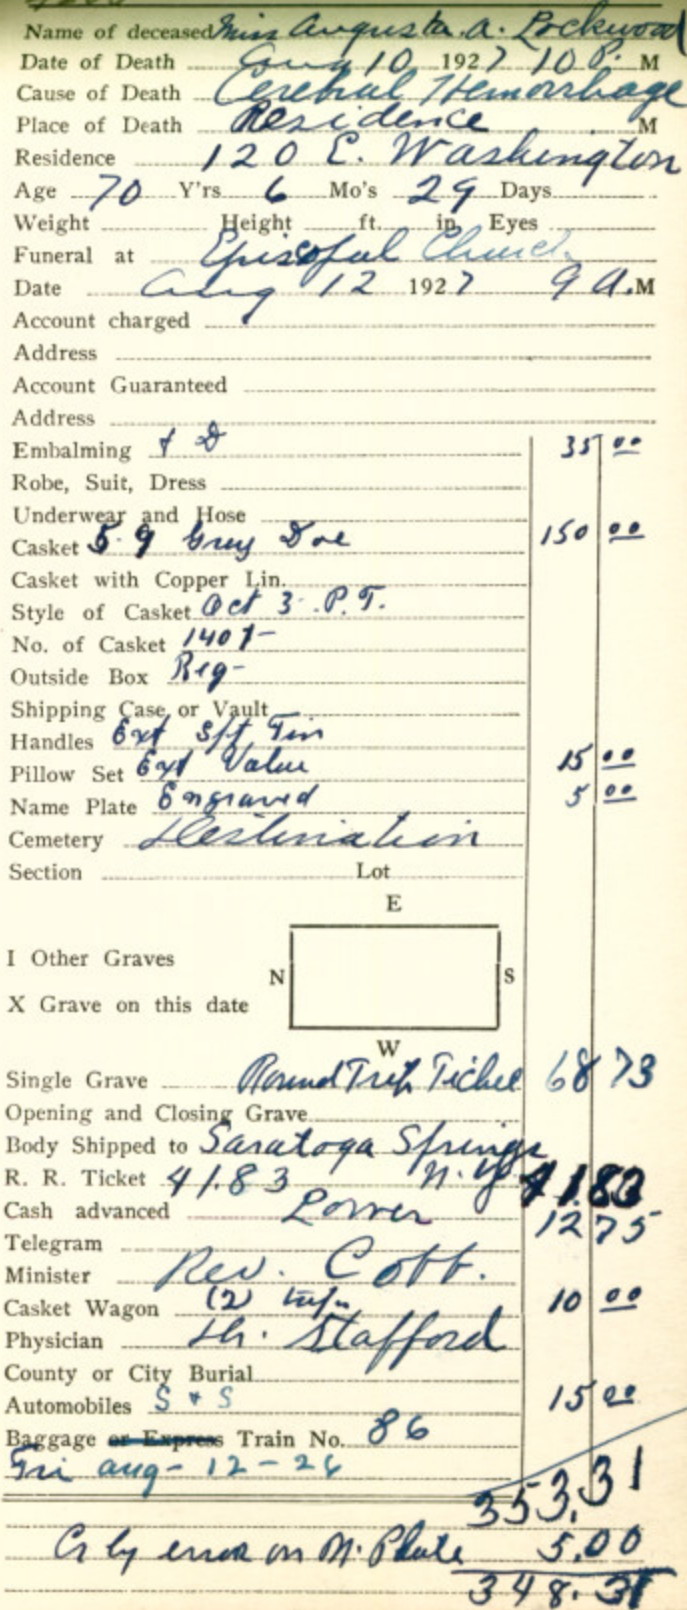 Name of deceased Miss Augusta. A. Lockwood
Date of Death Aug 10 1927 10 P. M
Cause of Death Cerebral Hemorrhage
Place of Death Residence M
Residence 120 E. Washington
Age 70 Y'rs 6 Mo's 29 Days
Weight Height ft. in. Eyes
Funeral at Episcopal Church
Date Aug 12 1927 9 A.M
Account charged
Address
Account Guaranteed
Address
Embalming & D 35 00
Robe, Suit, Dress
Underwear and Hose
Casket 5-9 Grey Doe 150 00
Casket with Copper Lin.
Style of Casket Oct 3 P.T.
No. of Casket
Outside Box Reg-
Shipping Case or Vault
Handles Ext
Pillow Set Ext Value 15 00
Name Plate Engraved 5 00
Cemetery Destination
Section Lot
E
I Other Graves
N S
X Grave on this date
W
Single Grave Round Trip Ticket 68 73
Opening and Closing Grave
Body Shipped to Saratoga Springs
R. R. Ticket 41.83 N.Y. 41 83
Cash advanced Lower 12 75
Telegram
Minister Rev. Cobb.
Casket Wagon (2) trips 10 00
Physician Dr. Stafford
County or City Burial
Automobiles S & S 15 00
Baggage or Express Train No. 86
Fri Aug-12-26
353.31
Cr by error on N. Plate 5.00
348.31